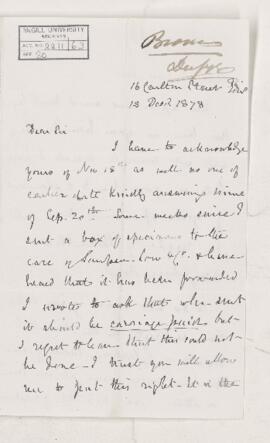 McGILL UNIVERSITY
ARCHIVES
ACC. NO. 2211 63
REF. 20
Brown
16 Carlton Street
13 Decr 1878
Dear Sir
I have to acknowledge
yours of Nov 18th as well as one of
earlier date kindly answering mine
of Sep. 20th Some weeks since I
sent a box of specimens to the
care of & have
heard that it has been forwarded
I wrote to ask that when sent
it should be carriage paid but
I regret to learn that this could not
be done - I trust you will allow
me to put this right - It is the